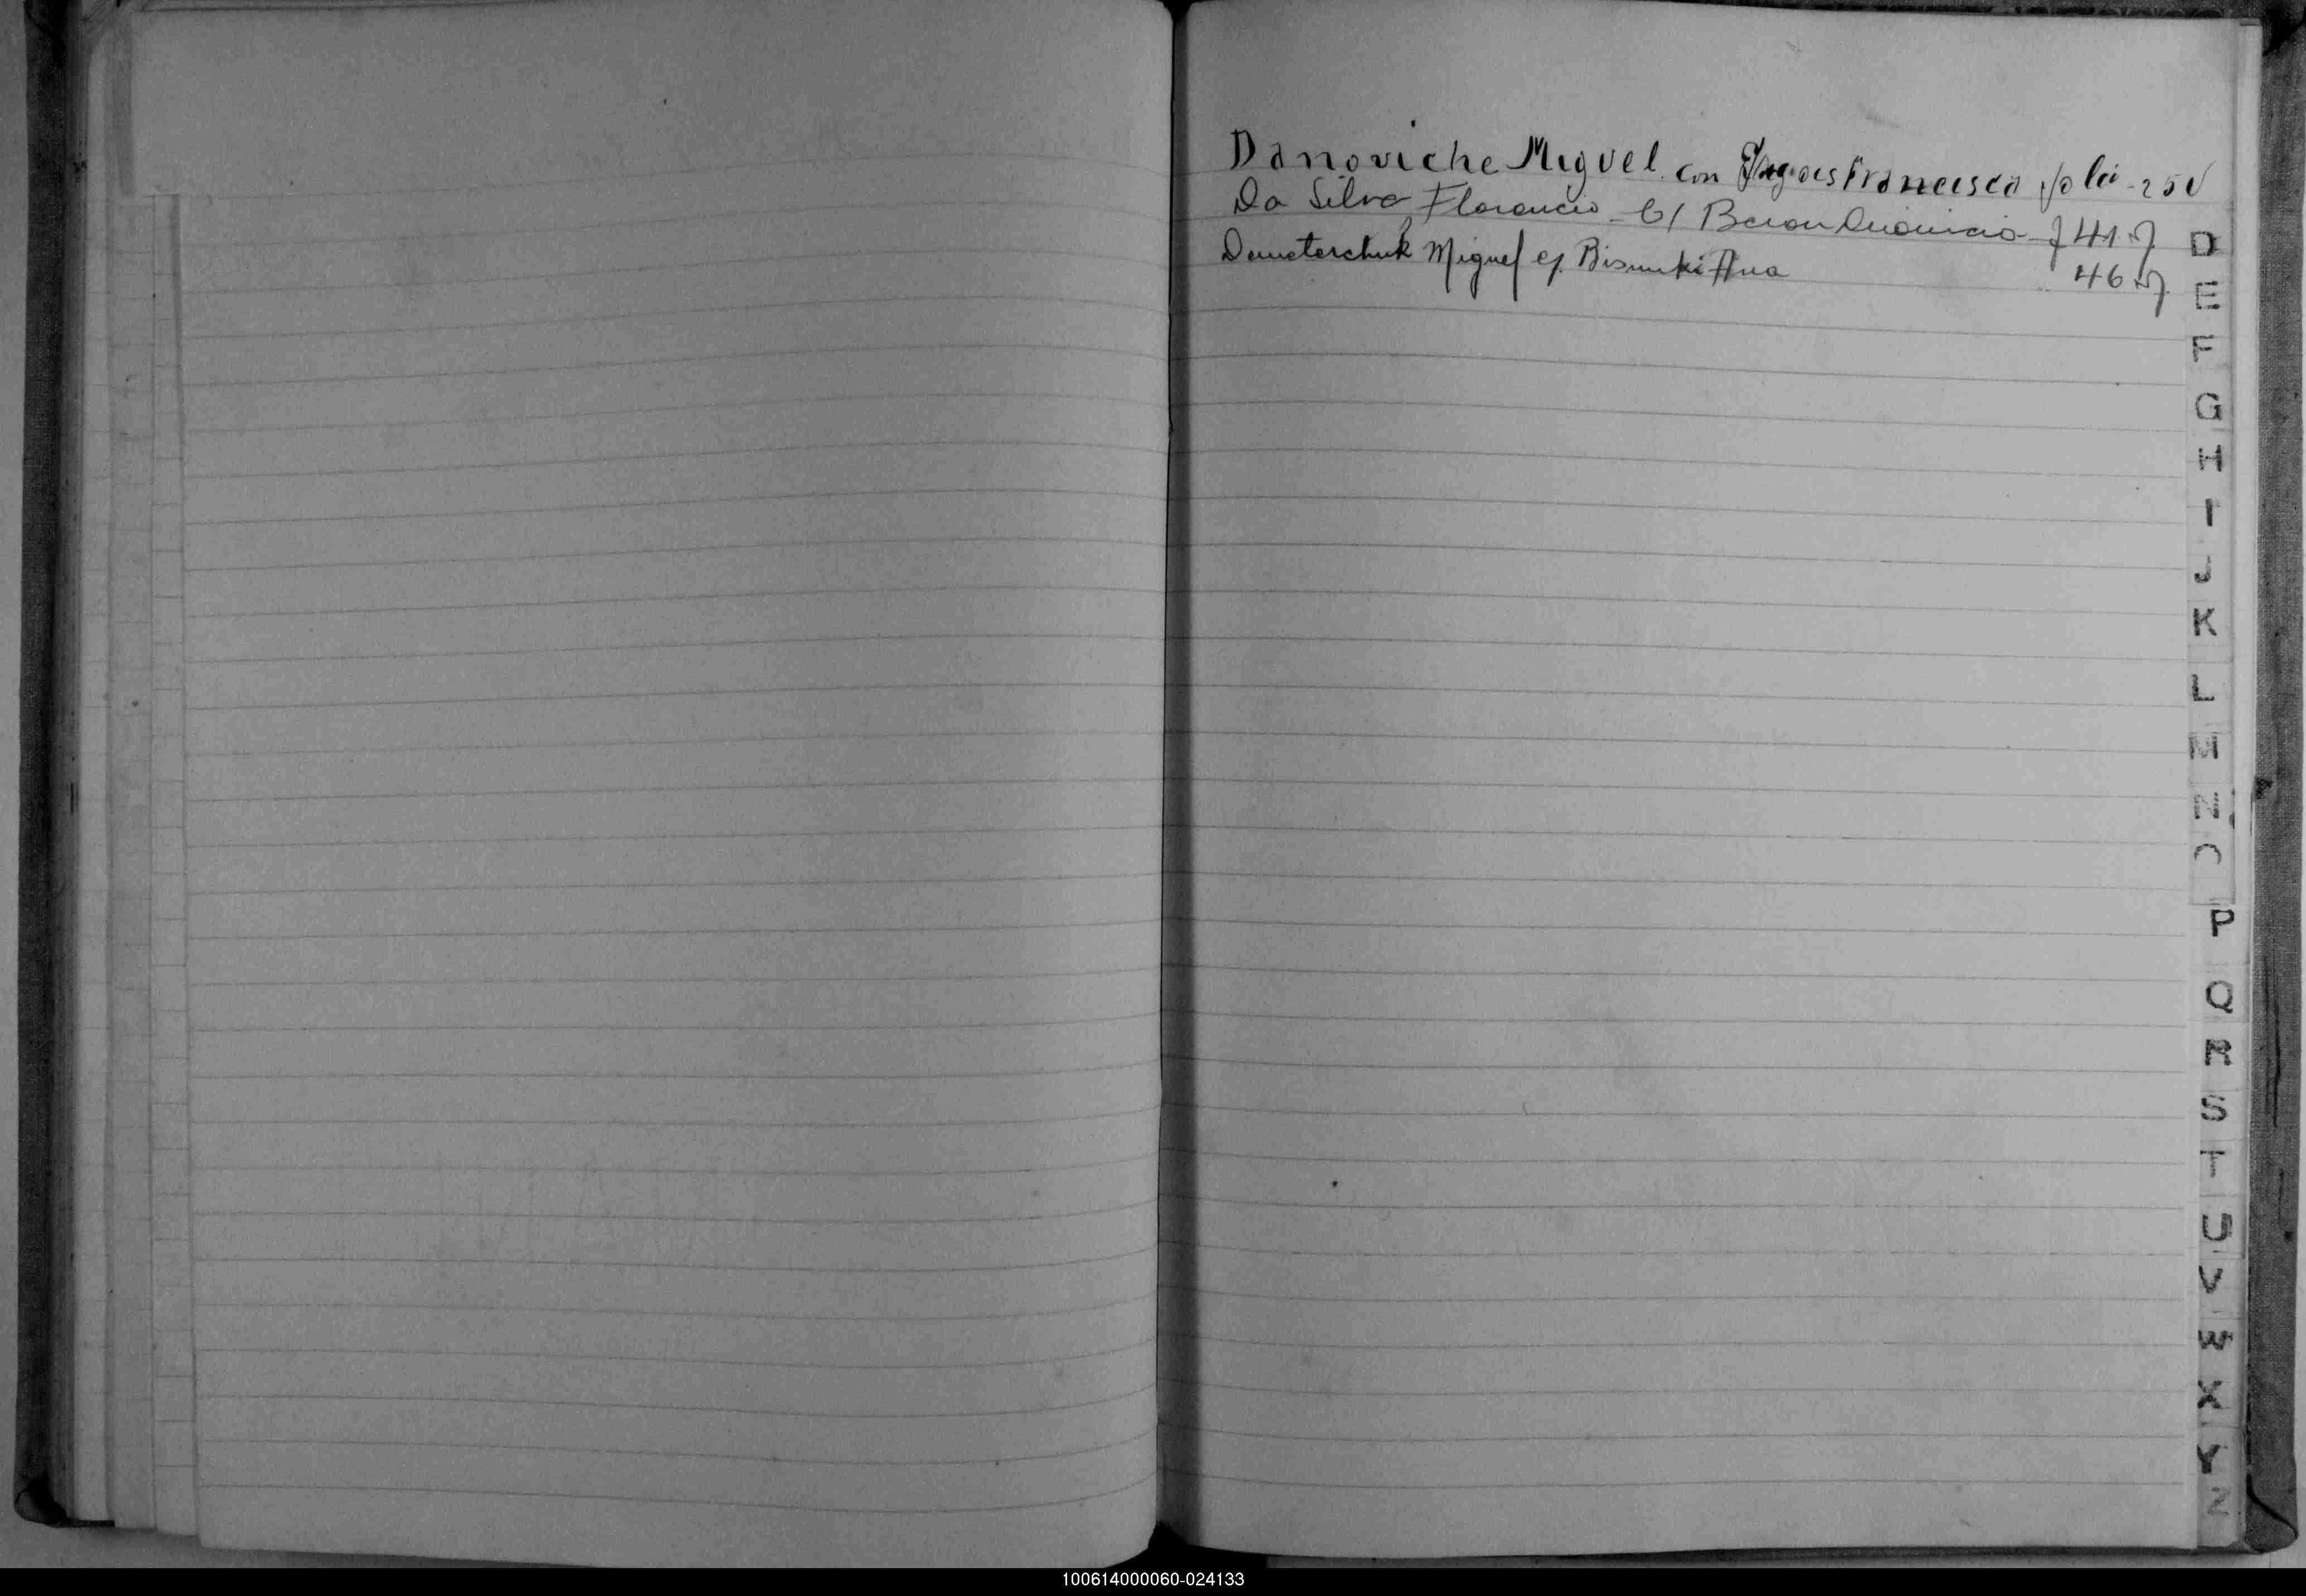 Danoviche Miguel con Francisca folio 25 V
Da Silva, Florencio c/ Dionicia f 41 v
Demeterchuk Miguel c/. Ana 46 v
D
E
F
G
H
I
J
K
L
M
N
O
P
Q
R
S
T
U
V
W
X
Y
Z
100614000060-024133